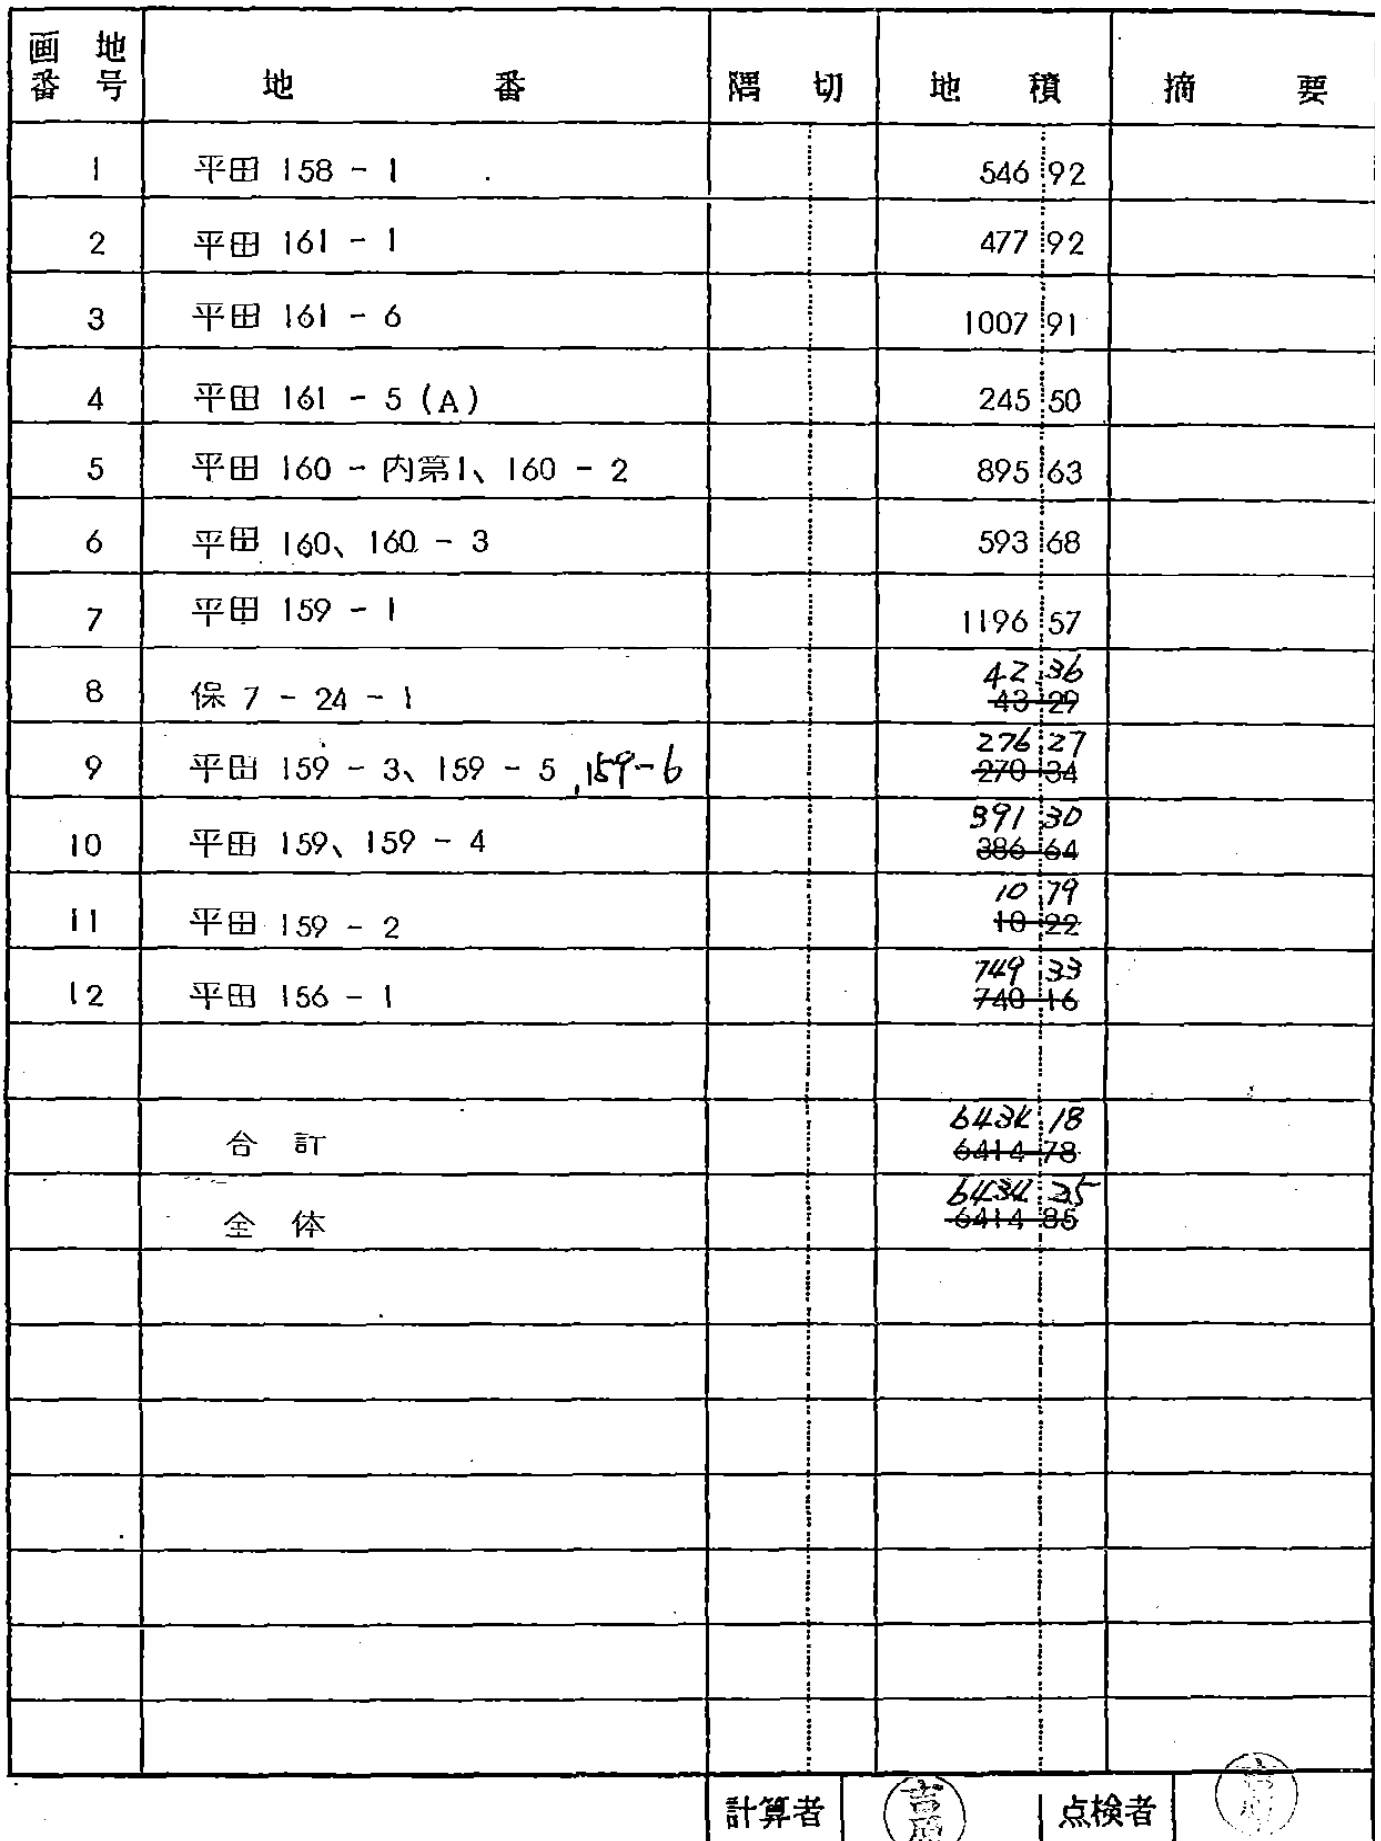 画 地
番 号
地 番 隅 切 地 積 摘 要
1 平田 158 - 1 546 92
2 平田 161 - 1 477 92
3 平田 161 - 6 1007 91
4 平田 161 - 5 (A) 245 50
5 平田 160 - 内第1、160 - 2 895 63
6 平田 160、160 - 3 593 68
7 平田 159 - 1 1196 57
42.36
8 保 7 - 24 - 1 43 29
276 27
9 平田 159 - 3、159 - 5 ,159-6 270 34
391 30
10 平田 159、159 - 4 386 64
10 79
11 平田 159 - 2 10 22
749 33
12 平田 156 - 1 740 16
6434 18
合 計 6414 78
6434 35
全 体 6414 85
計算者 点検者